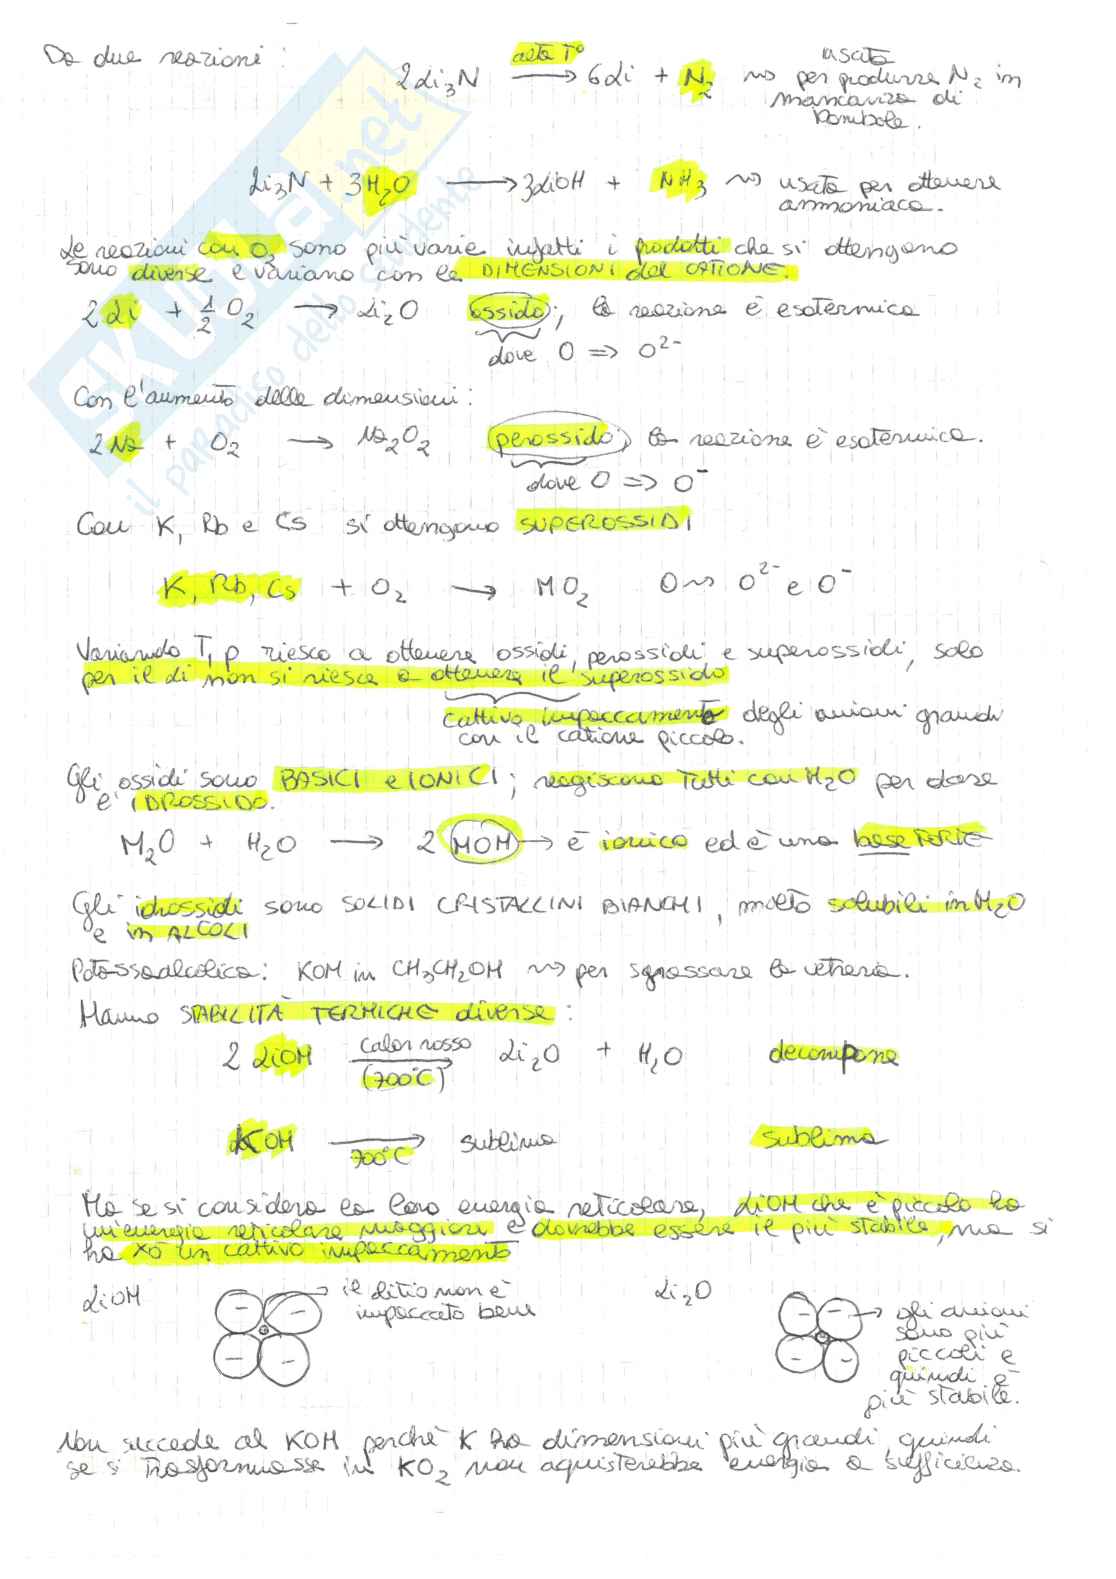 Da due reazioni:
2Li₃N —alta T°→ 6Li + N₂ ~> usata per produrre N₂ in mancanza di bombole.
Li₃N + 3H₂O → 3LiOH + NH₃ ~> usata per ottenere ammoniaca.
Le reazioni con O₂ sono più varie infatti i prodotti che si ottengono
sono diverse e variano con le DIMENSIONI del CATIONE.
2Li + 1/2 O₂ → Li₂O ossido; la reazione è esotermica
dove O => O²⁻
Con l'aumento delle dimensioni:
2Na + O₂ → Na₂O₂ perossido; la reazione è esotermica.
dove O => O⁻
Con K, Rb e Cs si ottengono SUPEROSSIDI
K, Rb, Cs + O₂ → MO₂ O~> O²⁻ e O⁻
Variando T, p riesco a ottenere ossidi, perossidi e superossidi, solo
per il Li non si riesce a ottenere il superossido
cattivo impaccamento degli anioni grandi
con il catione piccolo.
Gli ossidi sono BASICI e IONICI; reagiscono tutti con H₂O per dare
l'IDROSSIDO.
M₂O + H₂O → 2 MOH → è ionico ed è una base FORTE
Gli idrossidi sono SOLIDI CRISTALLINI BIANCHI, molto solubili in H₂O
e in ALCOLI
Potassaalcolica: KOH in CH₃CH₂OH ~> per sgrassare la vetreria.
Hanno STABILITÀ TERMICHE diverse:
2 LiOH —calor rosso (700°C)→ Li₂O + H₂O decompone
KOH —700°C→ sublima sublima
Ma se si considera la loro energia reticolare, LiOH che è piccolo ha
un'energia reticolare maggiore e dovrebbe essere il più stabile, ma si
ha xò un cattivo impaccamento
LiOH
il litio non è
impaccato bene
Li₂O
gli anioni
sono più
piccoli e
quindi è
più stabile.
Non succede al KOH perchè K ha dimensioni più grandi, quindi
se si trasformasse in KO₂ non aquisterebbe energia a sufficienza.
SKUOLA.net
il paradiso dello studente